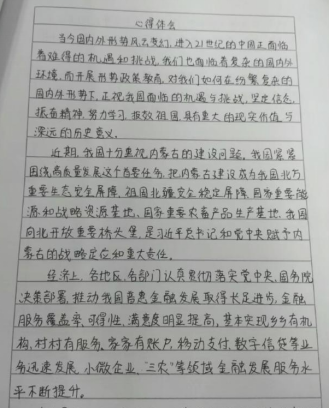 心得体会
当今国内外形势风云变幻,进入21世纪的中国正面临
着难得的机遇和挑战,我们也面临着复杂的国内外
环境,而开展形势政策教育,对我们如何在纷繁复杂的
国内外形势下,正视我国面临的机遇与挑战,坚定信念,
振奋精神,努力学习,报效祖国,具有重大的现实价值与
深远的历史意义。
近期,我国十分重视内蒙古的建设问题,我国紧紧
围绕高质量发展这个首要任务,把内蒙古建设成为我国北方
重要生态安全屏障、祖国北疆安全稳定屏障、国家重要能
源和战略资源基地、国家重要农畜产品生产基地、我国
向北开放重要桥头堡,是习近平总书记和党中央赋予内
蒙古的战略定位和重大责任。
经济上,各地区、各部门认真贯彻落实党中央、国务院
决策部署,推动我国普惠金融发展取得长足进步,金融
服务覆盖率、可得性、满意度明显提高,基本实现乡乡有机
构,村村有服务,家家有账户,移动支付、数字信贷等业
务迅速发展,小微企业、“三农”等领域金融发展服务水
平不断提升。